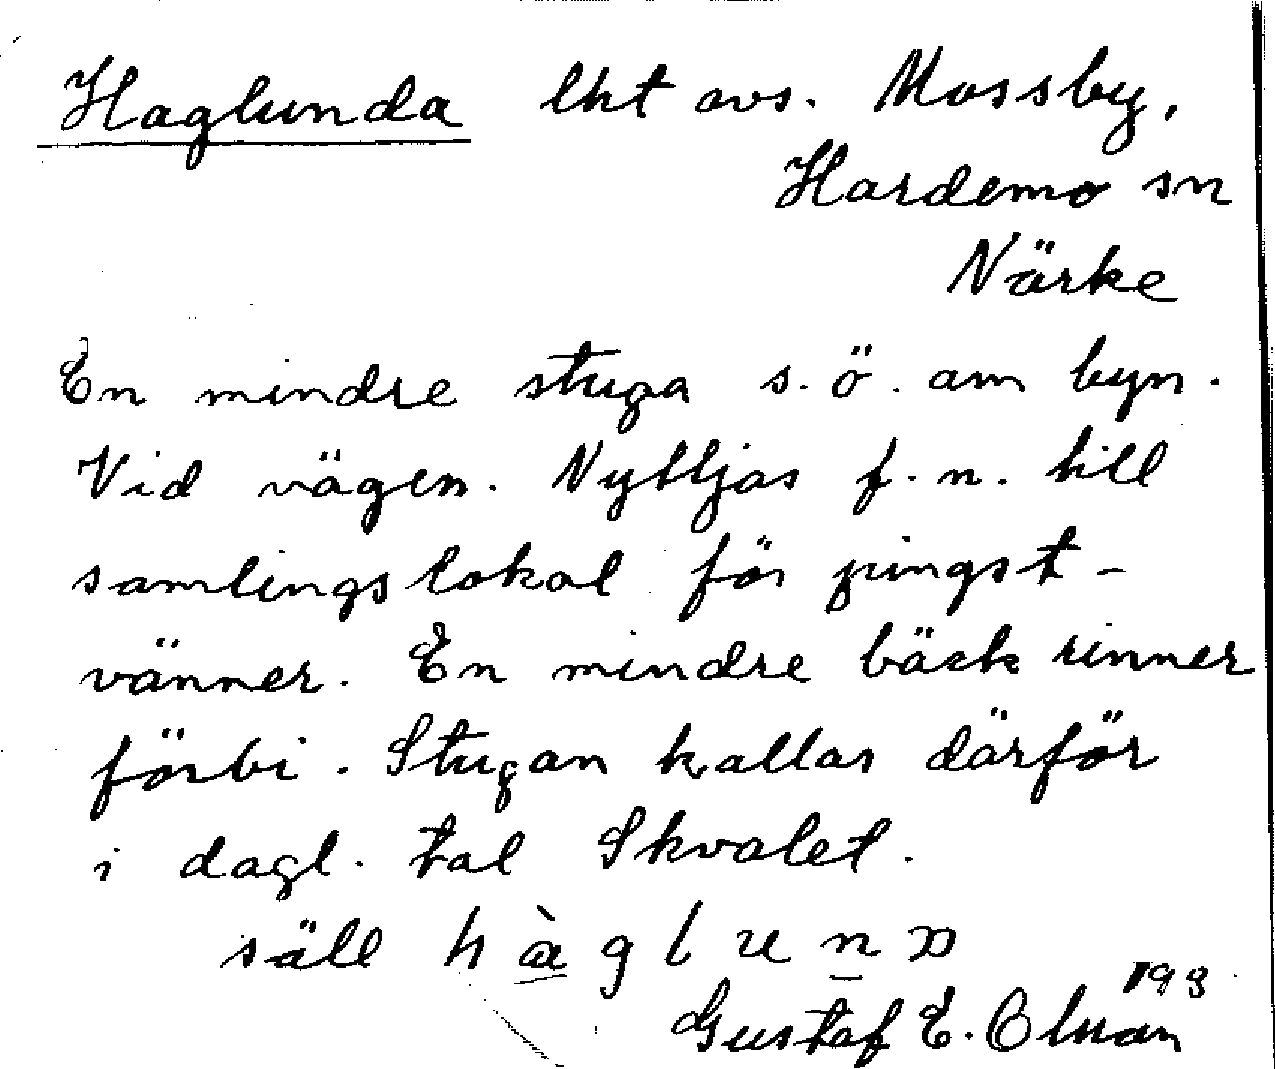 Haglunda lht avs. Mossby,
Hardemo sn
Närke
En mindre stuga s.ö. om byn.
Vid vägen. Nyttjas f.n. till
samlingslokal för pingst-
vänner. En mindre bäck rinner
förbi. Stugan kallas därför
i dagl. tal Skvalet.
säll hàglun
193
Gustaf E. Olsson